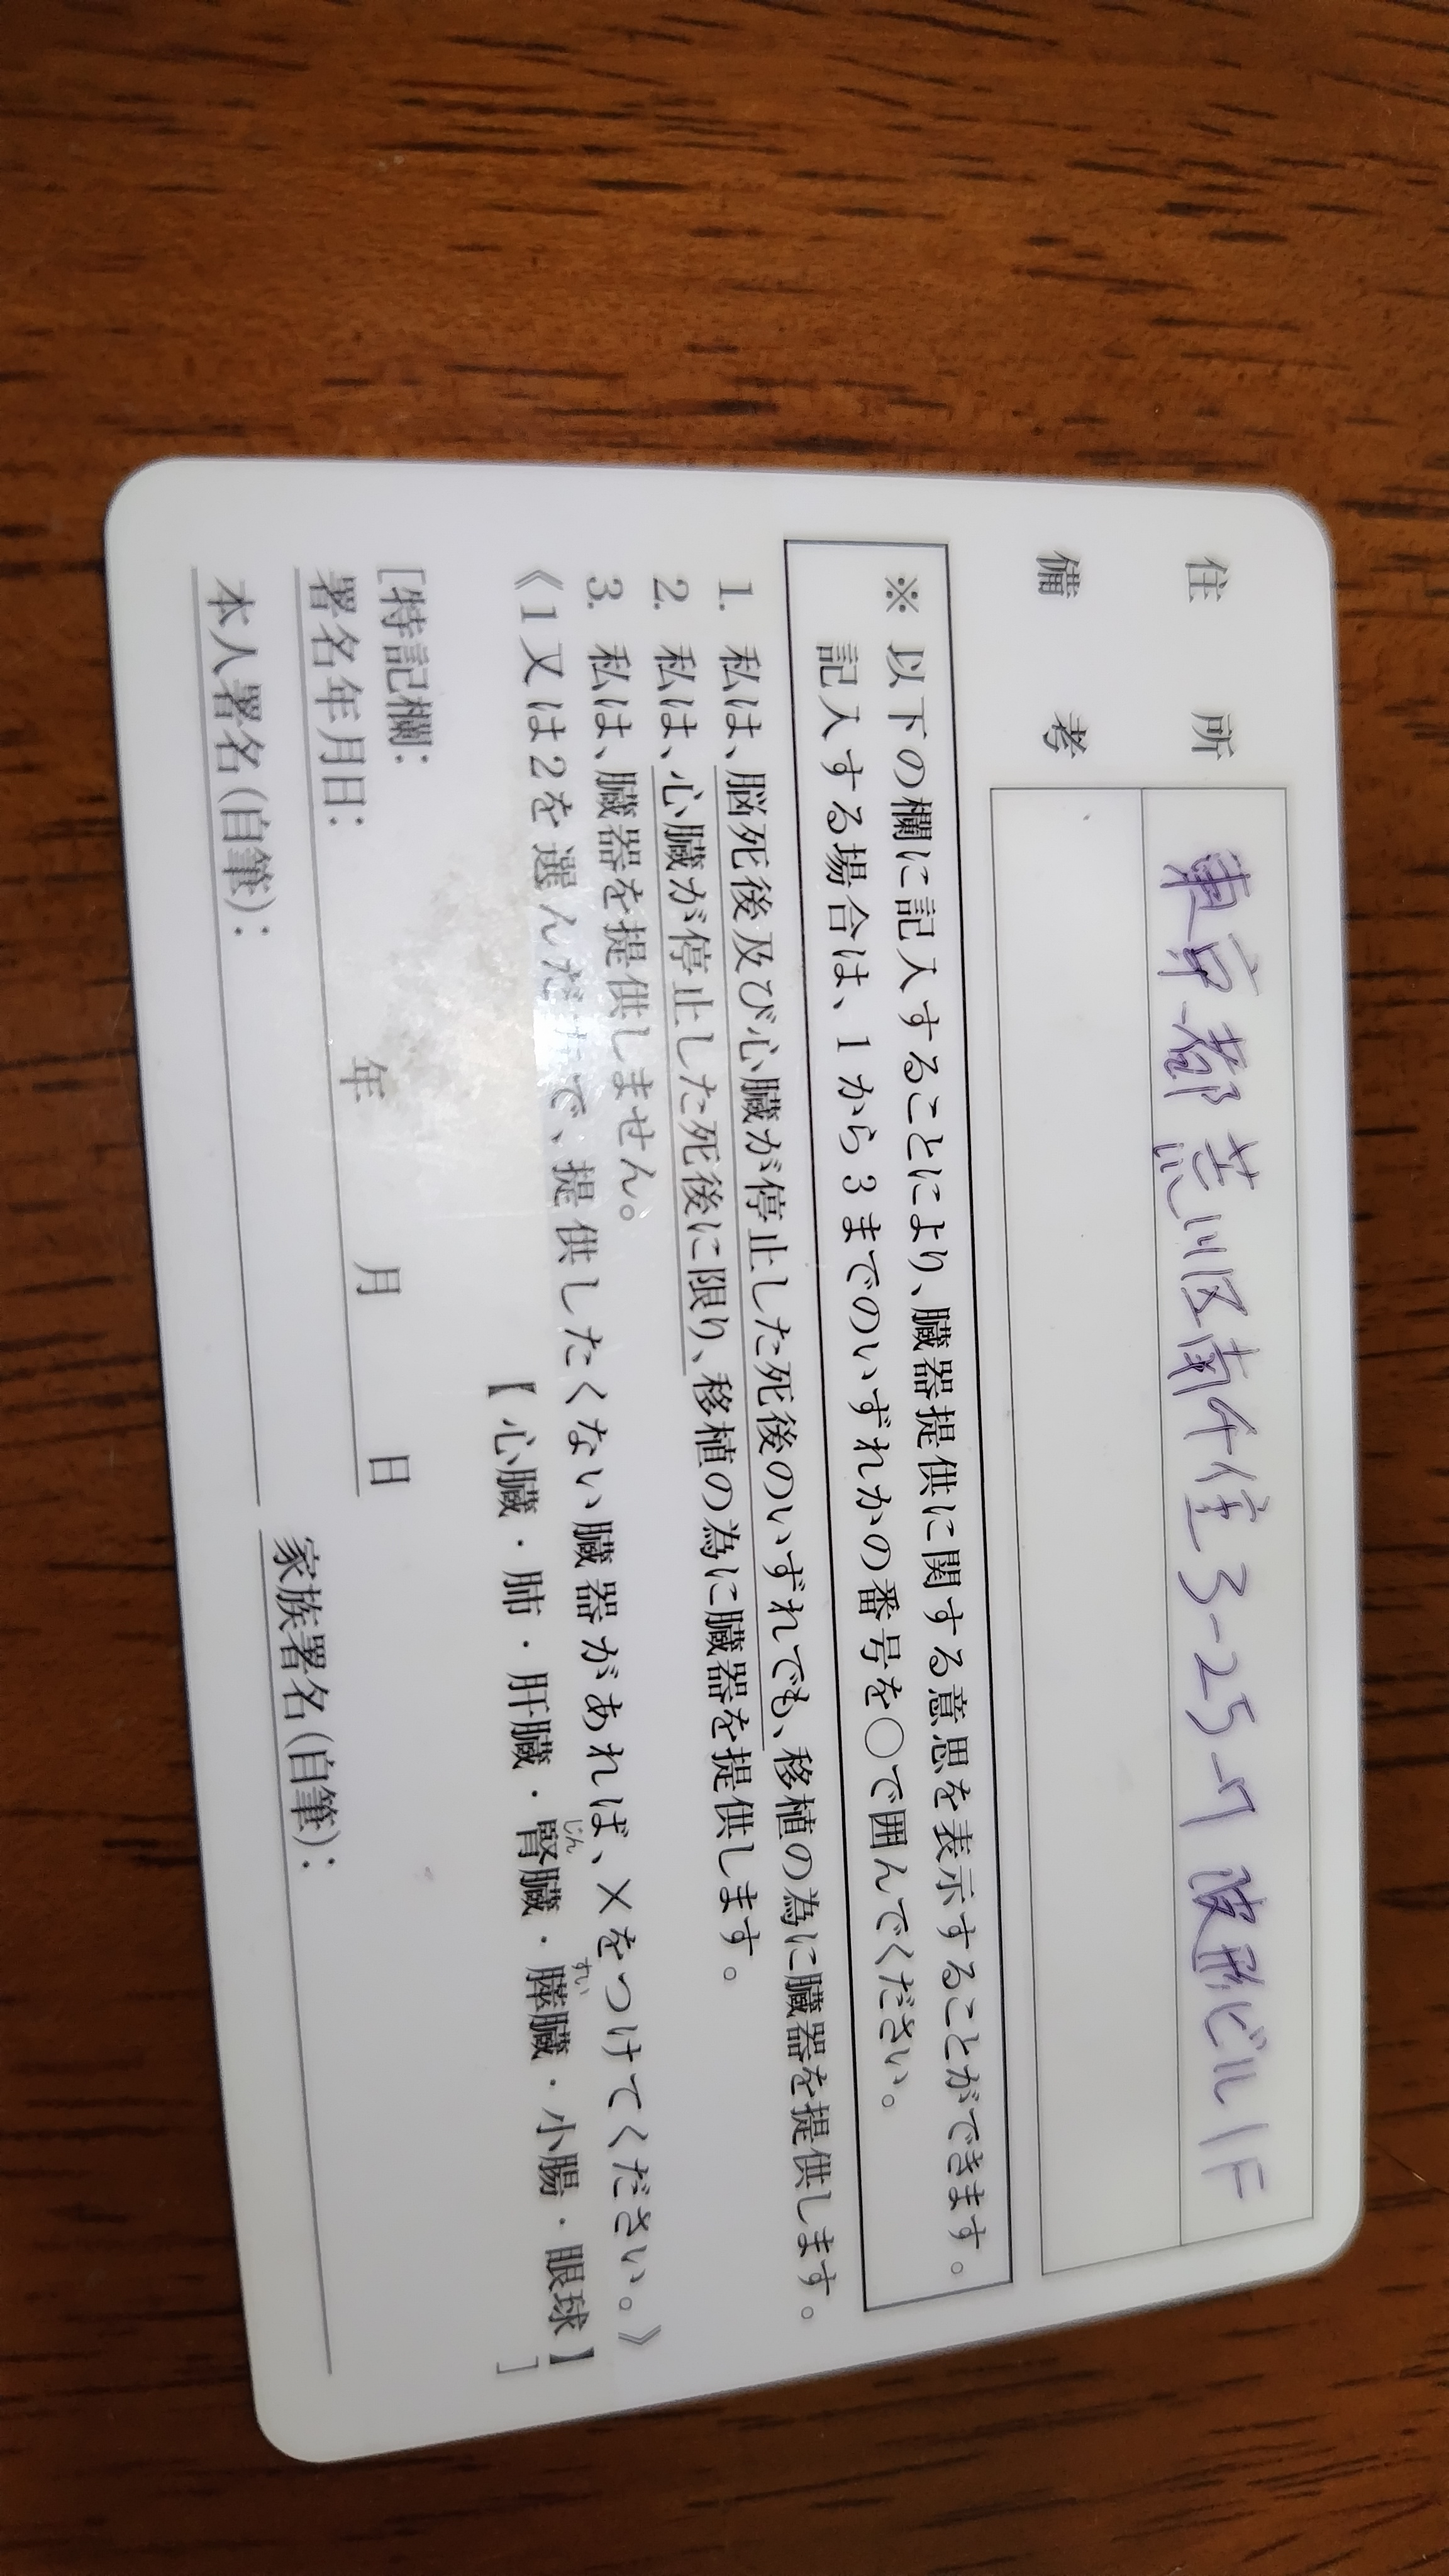 住所 東京都荒川区南千住3-25-7 波形ビル1F
備考
※ 以下の欄に記入することにより、臓器提供に関する意思を表示することができます。
記入する場合は、1から3までのいずれかの番号を○で囲んでください。
1. 私は、脳死後及び心臓が停止した死後のいずれでも、移植の為に臓器を提供します。
2. 私は、心臓が停止した死後に限り、移植の為に臓器を提供します。
3. 私は、臓器を提供しません。
《1又は2を選んだ方で、提供したくない臓器があれば、×をつけてください。》
【心臓・肺・肝臓・腎臓・膵臓・小腸・眼球】
[特記欄: ]
署名年月日: 年 月 日
本人署名(自筆): 家族署名(自筆):